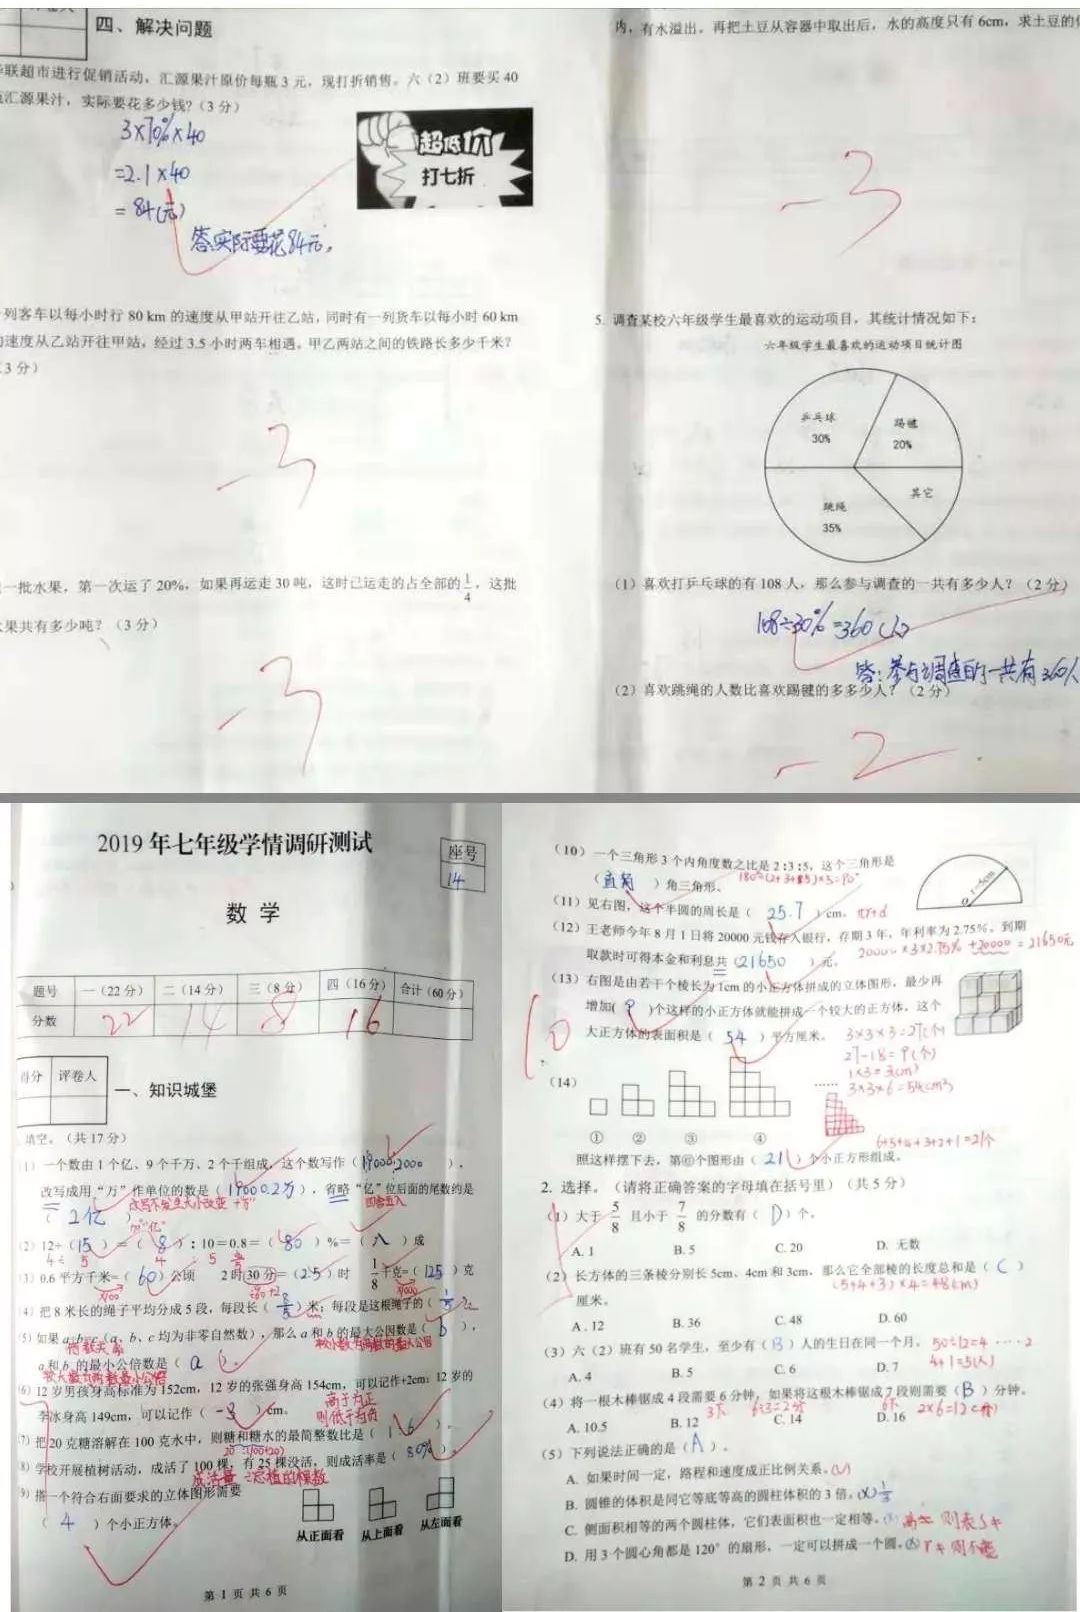 四、解决问题
联超市进行促销活动，汇源果汁原价每瓶3元，现打折销售。六（2）班要买40
汇源果汁，实际要花多少钱？（3分）
3×70%×40
=2.1×40
=84(元)
答:实际要花84元。
超低价
打七折
列客车以每小时行80 km的速度从甲站开往乙站，同时有一列货车以每小时60 km
速度从乙站开往甲站，经过3.5小时两车相遇。甲乙两站之间的铁路长多少千米？
3分）
-3
一批水果，第一次运了20%，如果再运走30吨，这时已运走的占全部的1/4，这批
果共有多少吨？（3分）
-3
内，有水溢出。再把土豆从容器中取出后，水的高度只有6cm，求土豆的
-3
5. 调查某校六年级学生最喜欢的运动项目，其统计情况如下：
六年级学生最喜欢的运动项目统计图
乒乓球
30%
踢毽
20%
其它
跳绳
35%
（1）喜欢打乒乓球的有108人，那么参与调查的一共有多少人？（2分）
108÷30%=360(人)
答:参与调查的一共有360人
（2）喜欢跳绳的人数比喜欢踢毽的多多少人？（2分）
-2
2019年七年级学情调研测试
座号
14
数 学
题号 一（22分） 二（14分） 三（8分） 四（16分） 合计（60分）
分数 22 14 8 16
得分 评卷人
一、知识城堡
填空。（共17分）
(1) 一个数由1个亿、9个千万、2个千组成，这个数写作（190002000），
改写成用“万”作单位的数是（19000.2万），省略“亿”位后面的尾数约是
改写不发生大小改变 +“万” 四舍五入
（2亿
(2) 12÷（15）=（8）：10=0.8=（80）%=（八）成
(3) 0.6平方千米=（60）公顷 2时30分=（2.5）时 1/8千克=（125）克
(4) 把8米长的绳子平均分成5段，每段长（8/5）米；每段是这根绳子的（1/5）
(5) 如果a÷b=c（a、b、c均为非零自然数），那么a和b的最大公因数是（b），
倍数关系 较小数为两数的最大公因
a和b的最小公倍数是（a）。
较大数为两数最小公倍
(6) 12岁男孩身高标准为152cm，12岁的张强身高154cm，可以记作+2cm；12岁的
李冰身高149cm，可以记作（-3）cm。
高于为正
则低于为负
(7) 把20克糖溶解在100克水中，则糖和糖水的最简整数比是（1:6）。
20:(100+20)
(8) 学校开展植树活动，成活了100棵，有25棵没活，则成活率是（80%）。
成活量÷总植的棵数
(9) 搭一个符合右面要求的立体图形需要
（4）个小正方体。
从正面看 从上面看 从左面看
第1页共6页
（10）一个三角形3个内角度数之比是2:3:5，这个三角形是
（直角）角三角形。
（11）见右图，这个半圆的周长是（25.7）cm。 πr+d
r=5cm
（12）王老师今年8月1日将20000元钱存入银行，存期3年，年利率为2.75%。到期
取款时可得本金和利息共（21650）元。 20000×3×2.75%+20000=21650元
（13）右图是由若干个棱长为1cm的小正方体拼成的立体图形，最少再
增加(9)个这样的小正方体就能拼成一个较大的正方体，这个
大正方体的表面积是（54）平方厘米。 3×3×3=27(个)
27-18=9(个)
1×3=3(cm)
3×3×6=54(cm²)
（14）
……
① ② ③ ④
6+5+4+3+2+1=21个
照这样摆下去，第⑥个图形由（21）个小正方形组成。
2. 选择。（请将正确答案的字母填在括号里）（共5分）
（1）大于5/8且小于7/8的分数有（D）个。
A. 1 B. 5 C. 20 D. 无数
（2）长方体的三条棱分别长5cm、4cm和3cm，那么它全部棱的长度总和是（C）
(5+4+3)×4=48(cm)
厘米。
A. 12 B. 36 C. 48 D. 60
（3）六（2）班有50名学生，至少有（B）人的生日在同一个月。 50÷12=4……2
4+1=5(人)
A. 4 B. 5 C. 6 D. 7
（4）将一根木棒锯成4段需要6分钟，如果将这根木棒锯成7段则需要（B）分钟。
3下 6÷3=2分 6下 2×6=12(分)
A. 10.5 B. 12 C. 14 D. 16
（5）下列说法正确的是（A）。
A. 如果时间一定，路程和速度成正比例关系。(√)
B. 圆锥的体积是同它等底等高的圆柱体积的3倍。(×) 1/3
C. 侧面积相等的两个圆柱体，它们表面积也一定相等。
D. 用3个圆心角都是120°的扇形，一定可以拼成一个圆。
第2页共6页